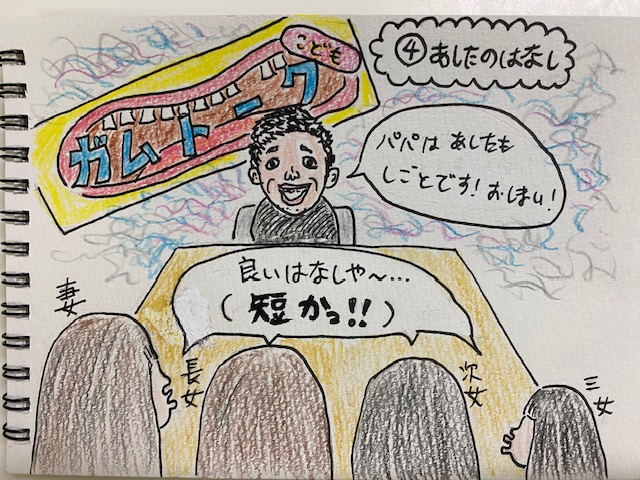 こども
ガムトーク
④あしたのはなし
パパは あしたも
しごとです!おしまい!
良いはなしや〜…
(短かっ!!)
妻
長女
次女
三女